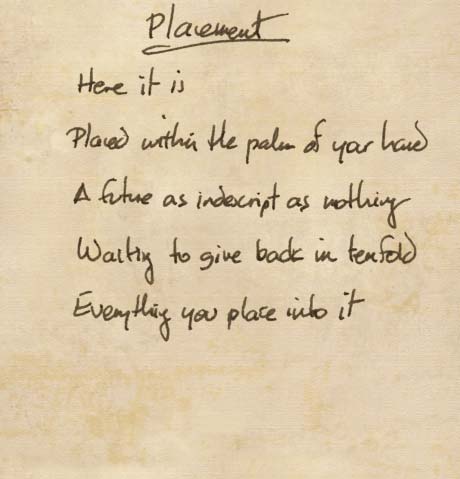 Placement
Here it is
Placed within the palm of your hand
A future as indescript as nothing
Waiting to give back in tenfold
Everything you place into it